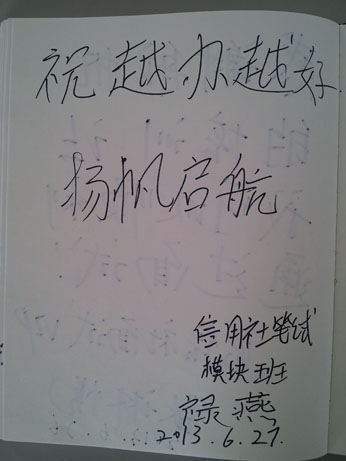 祝越办越好
扬帆启航
信用社笔试
模块班
禄燕
2013.6.27.